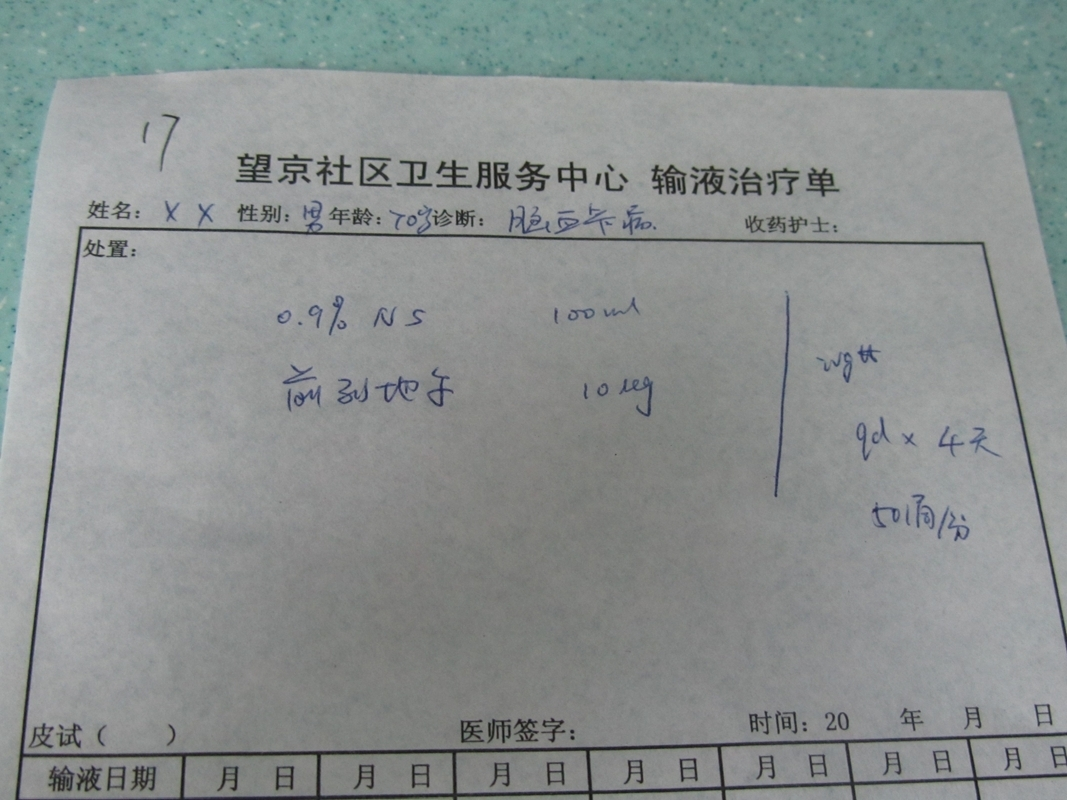 17
望京社区卫生服务中心 输液治疗单
姓名: X X 性别: 男 年龄: 70岁 诊断: 脑血管病. 收药护士:
处置:
0.9% NS 100ml
前列地尔 10ug
ivgtt
qd × 4天
50滴/分
皮试( ) 医师签字: 时间: 20 年 月 日
输液日期 月 日 月 日 月 日 月 日 月 日 月 日 月 日